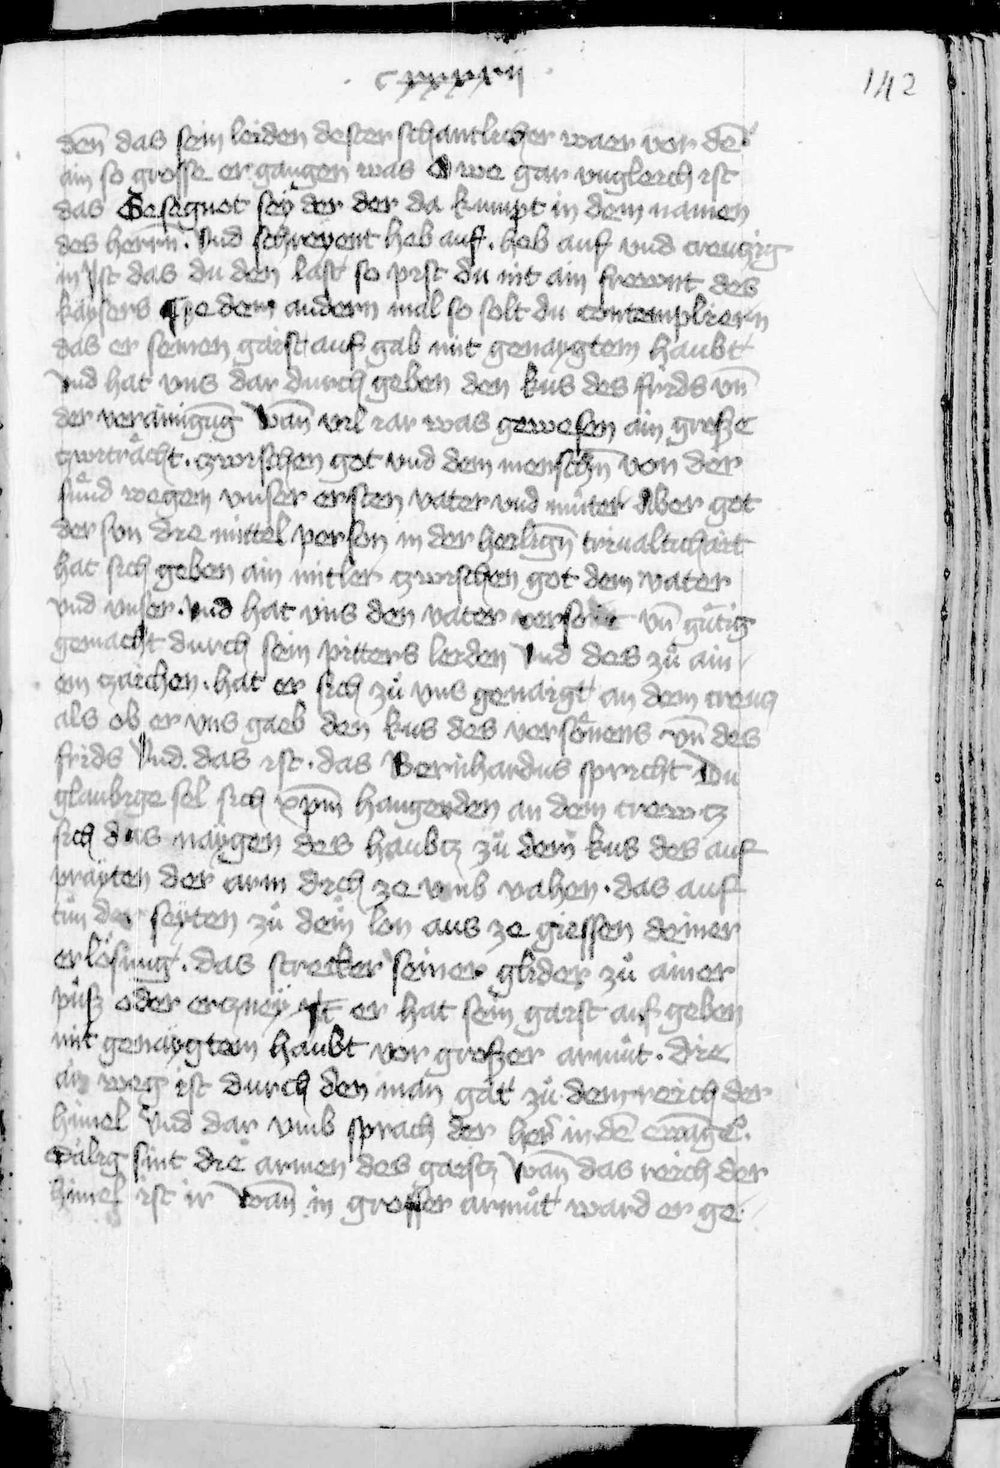 cxxxxii
142
den̄ das sein leiden dester schantlicher waer vor dē
ain so grosse er gangen was O we gar vngleich ist
das Gesegnot seÿ der der da kumpt in dem namen
des herrn̄. Vnd schreyent heb auf. heb auf vnd creutzig
in Ist das du den last so pist du nit ain frewnt des
kaÿsers Zedem andern mal so solt du contemplieren
das er seinen gaist auf gab mit genaygtem haubt
Vnd hat vns dar durch geben den kus des frids vn̄
der verainigūg Wan̄ vil iar was gewesen ain grosze
zwitraͤcht. zwischen got vnd dem menschn̄ von der
suͤnd wegen vnser ersten vater vnd muͦter Aber got
der sun die mittel person in der heilign̄ triualtichait
hat sich geben ain mitler zwischen got dem vater
vnd vnser. Vnd hat vns den vater versoͤnt vn̄ guͤtig
gemacht durch sein pitters leiden Vnd des zuͦ ain
em zaichen. hat er sich zuͦ vns genaigt an dem creutz
als ob er vns gaeb den kus des versoͤnens vn̄ des
frids Vnd das ist. das Bernhardus spricht Du
glaubige sel sich xp̄m hangenden an dem crewtz
sich das naÿgen des haubtz zuͦ dem kus des auf
praÿten der arm dich ze vmb vahen. das auf
tuͦn der seÿten zuͦ dem lon aus ze giessen deiner
erloͤsung. das strecken seiner glider zuͦ ainer
puͦsz oder erczneÿ It er hat sein gaist auf geben
mit genaÿgtem haubt vor groszer armuͦt. die
ain weg ist durch den man gat zuͦ dem reich der
himel Vnd dar vmb sprach der her in dē ewāgelͦ.
Saͤlig sint die armen des gaistz Wan̄ das reich der
himel ist ir Wan̄ in grosser armuͦt ward er ge